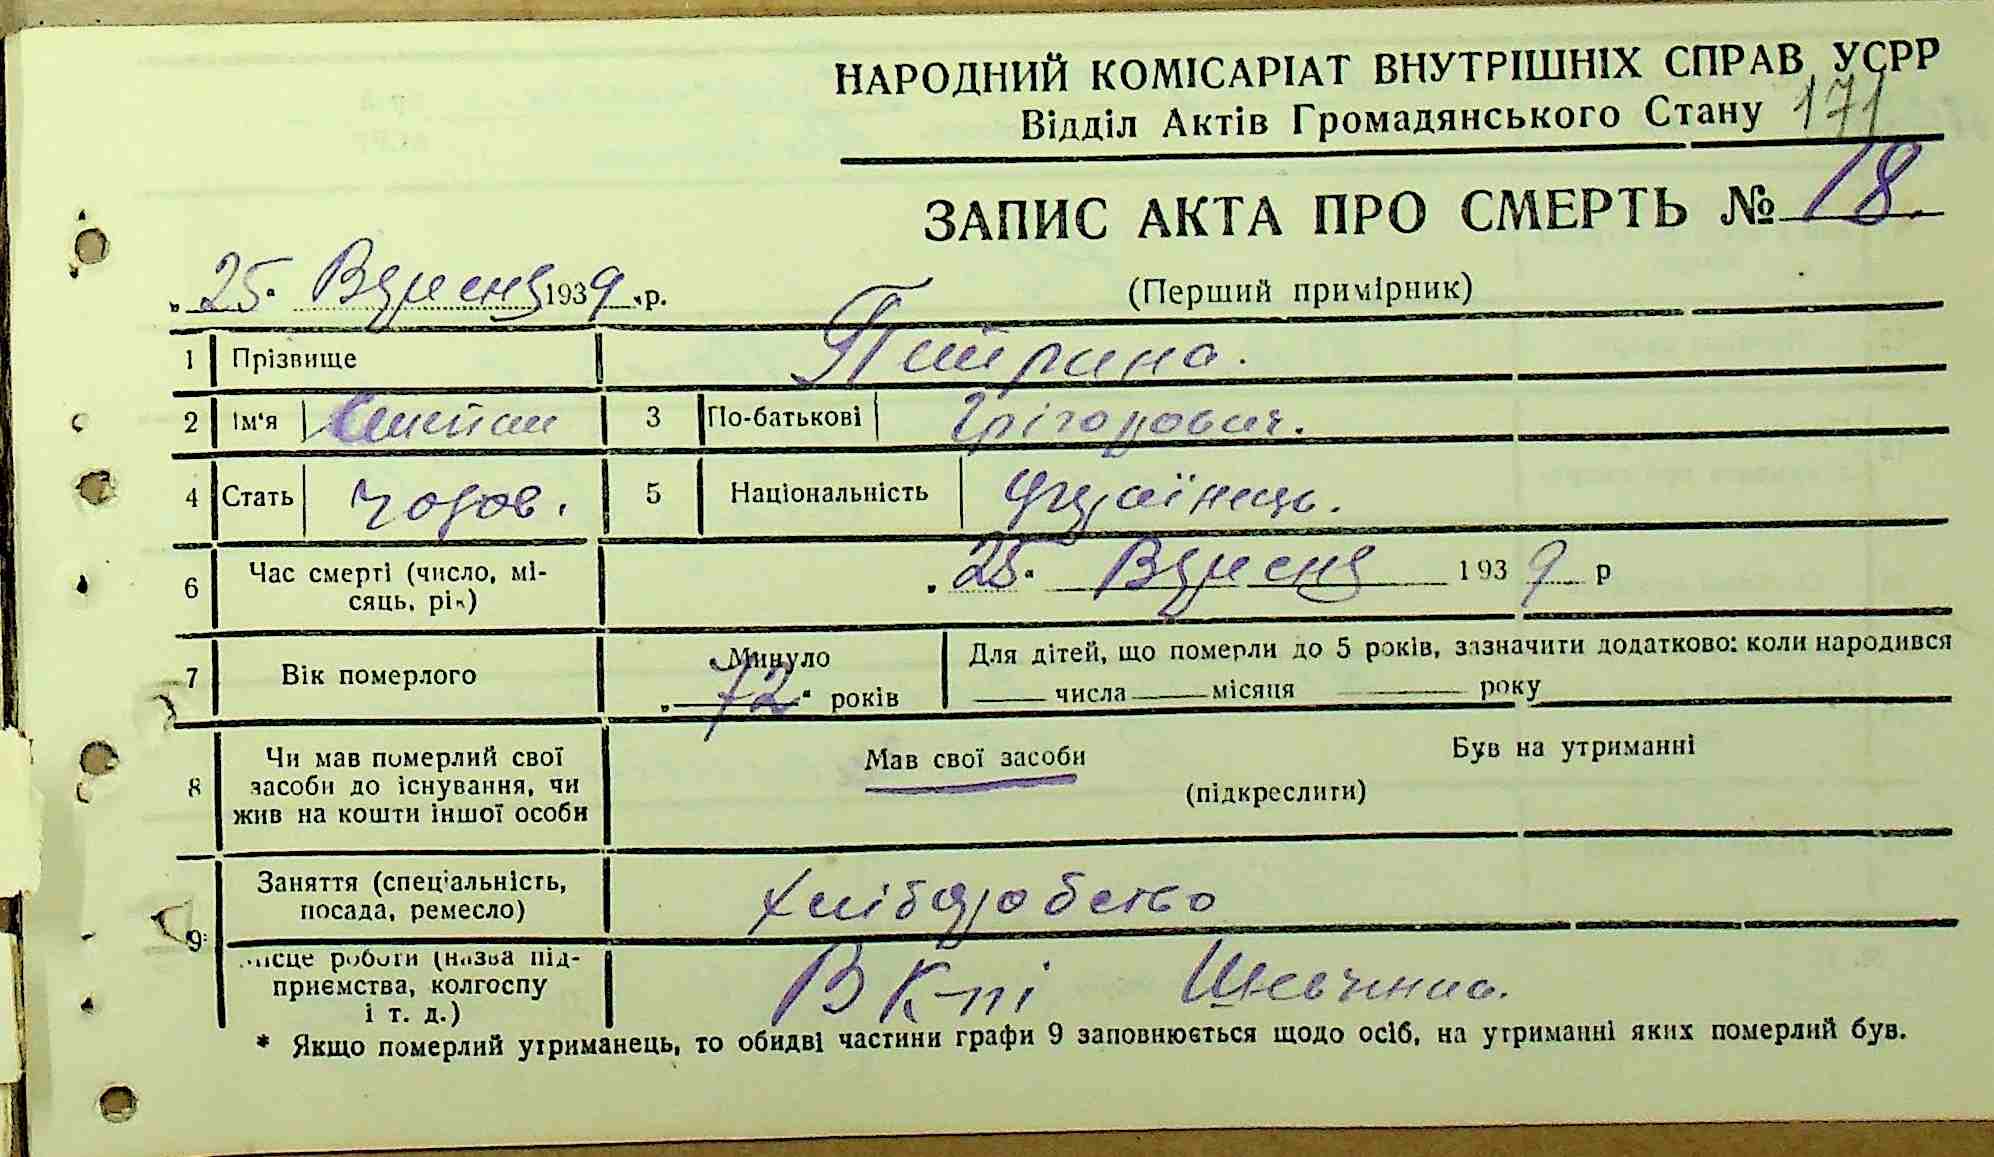 НАРОДНИЙ КОМІСАРІАТ ВНУТРІШНІХ СПРАВ УСРР
Відділ Актів Громадянського Стану 171
ЗАПИС АКТА ПРО СМЕРТЬ № 18.
„25" Вересня 1939 р.
(Перший примірник)
1 Прізвище
2 Ім'я Степан 3 По-батькові Грігорович.
4 Стать чолов. 5 Національність Українець.
6 Час смерті (число, мі-
сяць, рік)
„25" Вересня 1939 р
7 Вік померлого
Минуло
„72" років
Для дітей, що померли до 5 років, зазначити додатково: коли народився
числа місяця року
8 Чи мав померлий свої
засоби до існування, чи
жив на кошти іншої особи
Мав свої засоби Був на утриманні
(підкреслити)
9 Заняття (спеціальність,
посада, ремесло)
хліборобство
Місце роботи (назва під-
приємства, колгоспу
і т. д.)
В К-пі Шевченка.
* Якщо померлий утриманець, то обидві частини графи 9 заповнюється щодо осіб, на утриманні яких померлий був.